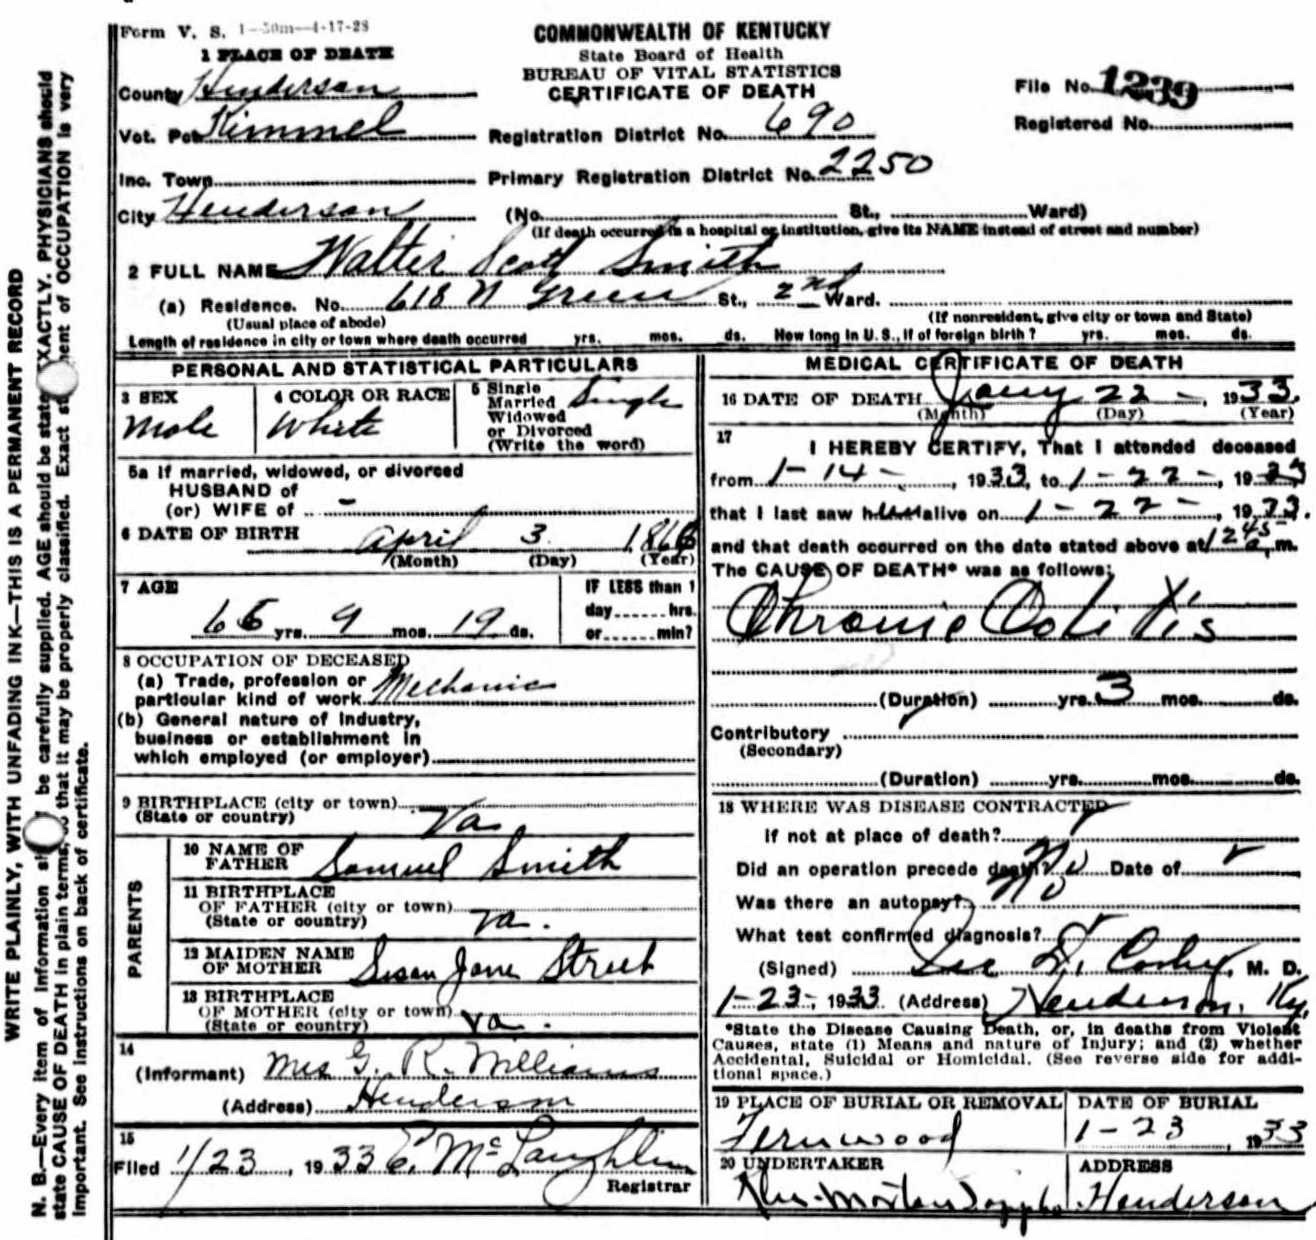 Form V. S. 1-50m-4-17-28
COMMONWEALTH OF KENTUCKY
State Board of Health
BUREAU OF VITAL STATISTICS
CERTIFICATE OF DEATH
1 PLACE OF DEATH
County Henderson
File No. 1239
Vot. Pct Kimmel
Registration District No. 690
Registered No.
Inc. Town
Primary Registration District No. 2250
City Henderson
(No. St., Ward)
(If death occurred in a hospital or institution, give its NAME instead of street and number)
2 FULL NAME Walter Scott Smith
(a) Residence. No. 618 N Green St., 2nd Ward.
(Usual place of abode)
(If nonresident, give city or town and State)
Length of residence in city or town where death occurred yrs. mos. ds. How long in U. S., if of foreign birth? yrs. mos. ds.
PERSONAL AND STATISTICAL PARTICULARS
3 SEX
Male
4 COLOR OR RACE
White
5 Single
Married
Widowed
or Divorced
(Write the word)
Single
5a If married, widowed, or divorced
HUSBAND of
(or) WIFE of -
6 DATE OF BIRTH April 3 1866
(Month) (Day) (Year)
7 AGE
66 yrs. 9 mos. 19 ds.
IF LESS than 1
day hrs.
or min?
8 OCCUPATION OF DECEASED
(a) Trade, profession or
particular kind of work Mechanic
(b) General nature of Industry,
business or establishment in
which employed (or employer)
9 BIRTHPLACE (city or town)
(State or country) Va
PARENTS
10 NAME OF
FATHER Samuel Smith
11 BIRTHPLACE
OF FATHER (city or town)
(State or country) Va.
12 MAIDEN NAME
OF MOTHER Susan Jane Street
13 BIRTHPLACE
OF MOTHER (city or town)
(State or country) Va.
14
(Informant) Mrs G. R. Williams
(Address) Henderson
15
Filed 1/23, 1933 E. McLaughlin
Registrar
MEDICAL CERTIFICATE OF DEATH
16 DATE OF DEATH Jany 22 -, 1933.
(Month) (Day) (Year)
17
I HEREBY CERTIFY, That I attended deceased
from 1-14-, 1933, to 1-22-, 1933
that I last saw him alive on 1-22-, 1933.
and that death occurred on the date stated above at 1245 m.
The CAUSE OF DEATH* was as follows:
Chronic Colitis
(Duration) yrs. 3 mos. ds.
Contributory
(Secondary)
(Duration) yrs. mos. ds.
18 WHERE WAS DISEASE CONTRACTED
if not at place of death?
Did an operation precede death? No Date of
Was there an autopsy? No
What test confirmed diagnosis?
(Signed) M. D.
1-23-1933 (Address) Henderson, Ky.
*State the Disease Causing Death, or, in deaths from Violent
Causes, state (1) Means and nature of Injury; and (2) whether
Accidental, Suicidal or Homicidal. (See reverse side for addi-
tional space.)
19 PLACE OF BURIAL OR REMOVAL
Fernwood
DATE OF BURIAL
1-23, 1933
20 UNDERTAKER
ADDRESS
Henderson
WRITE PLAINLY, WITH UNFADING INK—THIS IS A PERMANENT RECORD
N. B.—Every item of information should be carefully supplied. AGE should be stated EXACTLY. PHYSICIANS should
state CAUSE OF DEATH in plain terms, so that it may be properly classified. Exact statement of OCCUPATION is very
important. See instructions on back of certificate.